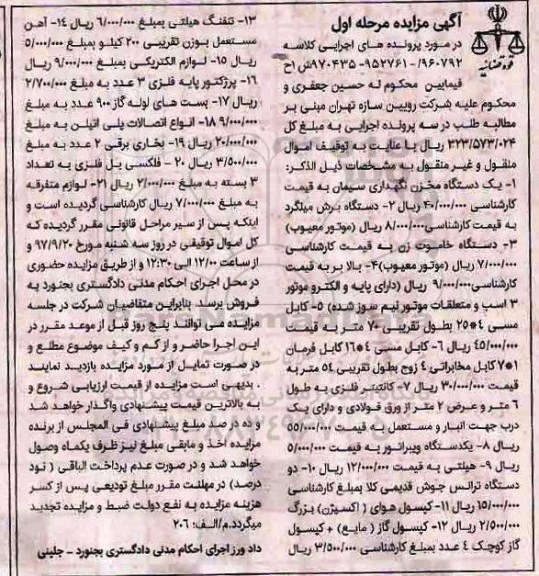 آگهی مزایده مرحله اول
در مورد پرونده های اجرایی کلاسه
۹۶۰۷۹۲/- ۹۵۲۷۶۱- ۹۷۰۴۳۵ش ا ح
فیمابین محکوم له حسین جعفری و
محکوم علیه شرکت رویین سازه تهران مبنی بر
مطالبه طلب در سه پرونده اجرایی به مبلغ کل
۳۲۳/۵۷۳/۰۲۴ ریال با عنایت به توقیف اموال
منقول و غیر منقول به مشخصات ذیل الذکر:
۱- یک دستگاه مخزن نگهداری سیمان به قیمت
کارشناسی ۴۰/۰۰۰/۰۰۰ ریال ۲- دستگاه برش میلگرد
به قیمت کارشناسی۸/۰۰۰/۰۰۰ ریال (موتور معیوب)
۳- دستگاه خاموت زن به قیمت کارشناسی
۷/۰۰۰/۰۰۰ ریال (موتور معیوب)۴- بالا بر به قیمت
کارشناسی۹/۰۰۰/۰۰۰ ریال (دارای پایه و الکترو موتور
۳ اسب و متعلقات موتور نیم سوز شده) ۵- کابل
مسی ۴*۲۵ بطول تقریبی ۷۰ متر به قیمت
۴۵/۰۰۰/۰۰۰ ریال ۶- کابل مسی ۴*۱۶ کابل فرمان
۱*۷ کابل مخابراتی ۴ زوج بطول تقریبی ۵۴ متر به
قیمت ۳۰/۰۰۰/۰۰۰ ریال ۷- کانتینر فلزی به طول
۶ متر و عرض ۲ متر از ورق فولادی و دارای یک
درب جهت انبار و مستعمل به قیمت ۵۵/۰۰۰/۰۰۰
ریال ۸- یکدستگاه ویبراتور به قیمت ۵/۰۰۰/۰۰۰
ریال ۹- هیلتی به قیمت ۱۲/۰۰۰/۰۰۰ ریال ۱۰- دو
دستگاه ترانس جوش قدیمی کلا بمبلغ کارشناسی
۱۵/۰۰۰/۰۰۰ ریال ۱۱- کپسول هوای ( اکسیژن) بزرگ
۲/۵۰۰/۰۰۰ ریال ۱۲- کپسول گاز ( مایع) + کپسول
گاز کوچک ۴ عدد بمبلغ کارشناسی ۳/۵۰۰/۰۰۰ ریال
۱۳- تفنگ هیلتی بمبلغ ۶/۰۰۰/۰۰۰ ریال ۱۴- آهن
مستعمل بوزن تقریبی ۲۰۰ کیلو بمبلغ ۵/۰۰۰/۰۰۰
ریال ۱۵- لوازم الکتریکی بمبلغ ۹/۰۰۰/۰۰۰ ریال
۱۶- پرژکتور پایه فلزی ۳ عدد به مبلغ ۲/۷۰۰/۰۰۰
ریال ۱۷- بست های لوله گاز ۹۰۰ عدد به مبلغ
۹/۰۰۰/۰۰۰ ۱۸- انواع اتصالات پلی اتیلن به مبلغ
۲۰/۰۰۰/۰۰۰ ریال ۱۹- بخاری برقی ۲ عدد به مبلغ
۳/۵۰۰/۰۰۰ ریال ۲۰ - فلکسی بل فلزی به تعداد
۳ بسته به مبلغ ۲/۰۰۰/۰۰۰ ریال ۲۱- لوازم متفرقه
به مبلغ ۷/۰۰۰/۰۰۰ ریال کارشناسی گردیده است و
اینکه پس از سیر مراحل قانونی مقرر گردیده که
کل اموال توقیفی در روز سه شنبه مورخ ۹۷/۹/۲۰
از ساعت ۱۲/۰۰ الی ۱۲:۳۰ و از طریق مزایده حضوری
در محل اجرای احکام مدنی دادگستری بجنورد به
فروش برسد. بنابراین متقاضیان شرکت در جلسه
مزایده می توانند پنج روز قبل از موعد مقرر در
این اجرا حاضر و از کم و کیف موضوع مطلع و
در صورت تمایل از مورد مزایده بازدید نمایند
. بدیهی است مزایده از قیمت ارزیابی شروع و
به بالاترین قیمت پیشنهادی واگذار خواهد شد
و ده در صد مبلغ پیشنهادی فی المجلس از برنده
مزایده اخذ و مابقی مبلغ نیز ظرف یکماه وصول
خواهد شد و در صورت عدم پرداخت الباقی ( نود
درصد) در مهلت مقرر مبلغ تودیعی پس از کسر
هزینه مزایده به نفع دولت ضبط و مزایده تجدید
میگردد.م/الف: ۲۰۶
داد ورز اجرای احکام مدنی دادگستری بجنورد - جلینی